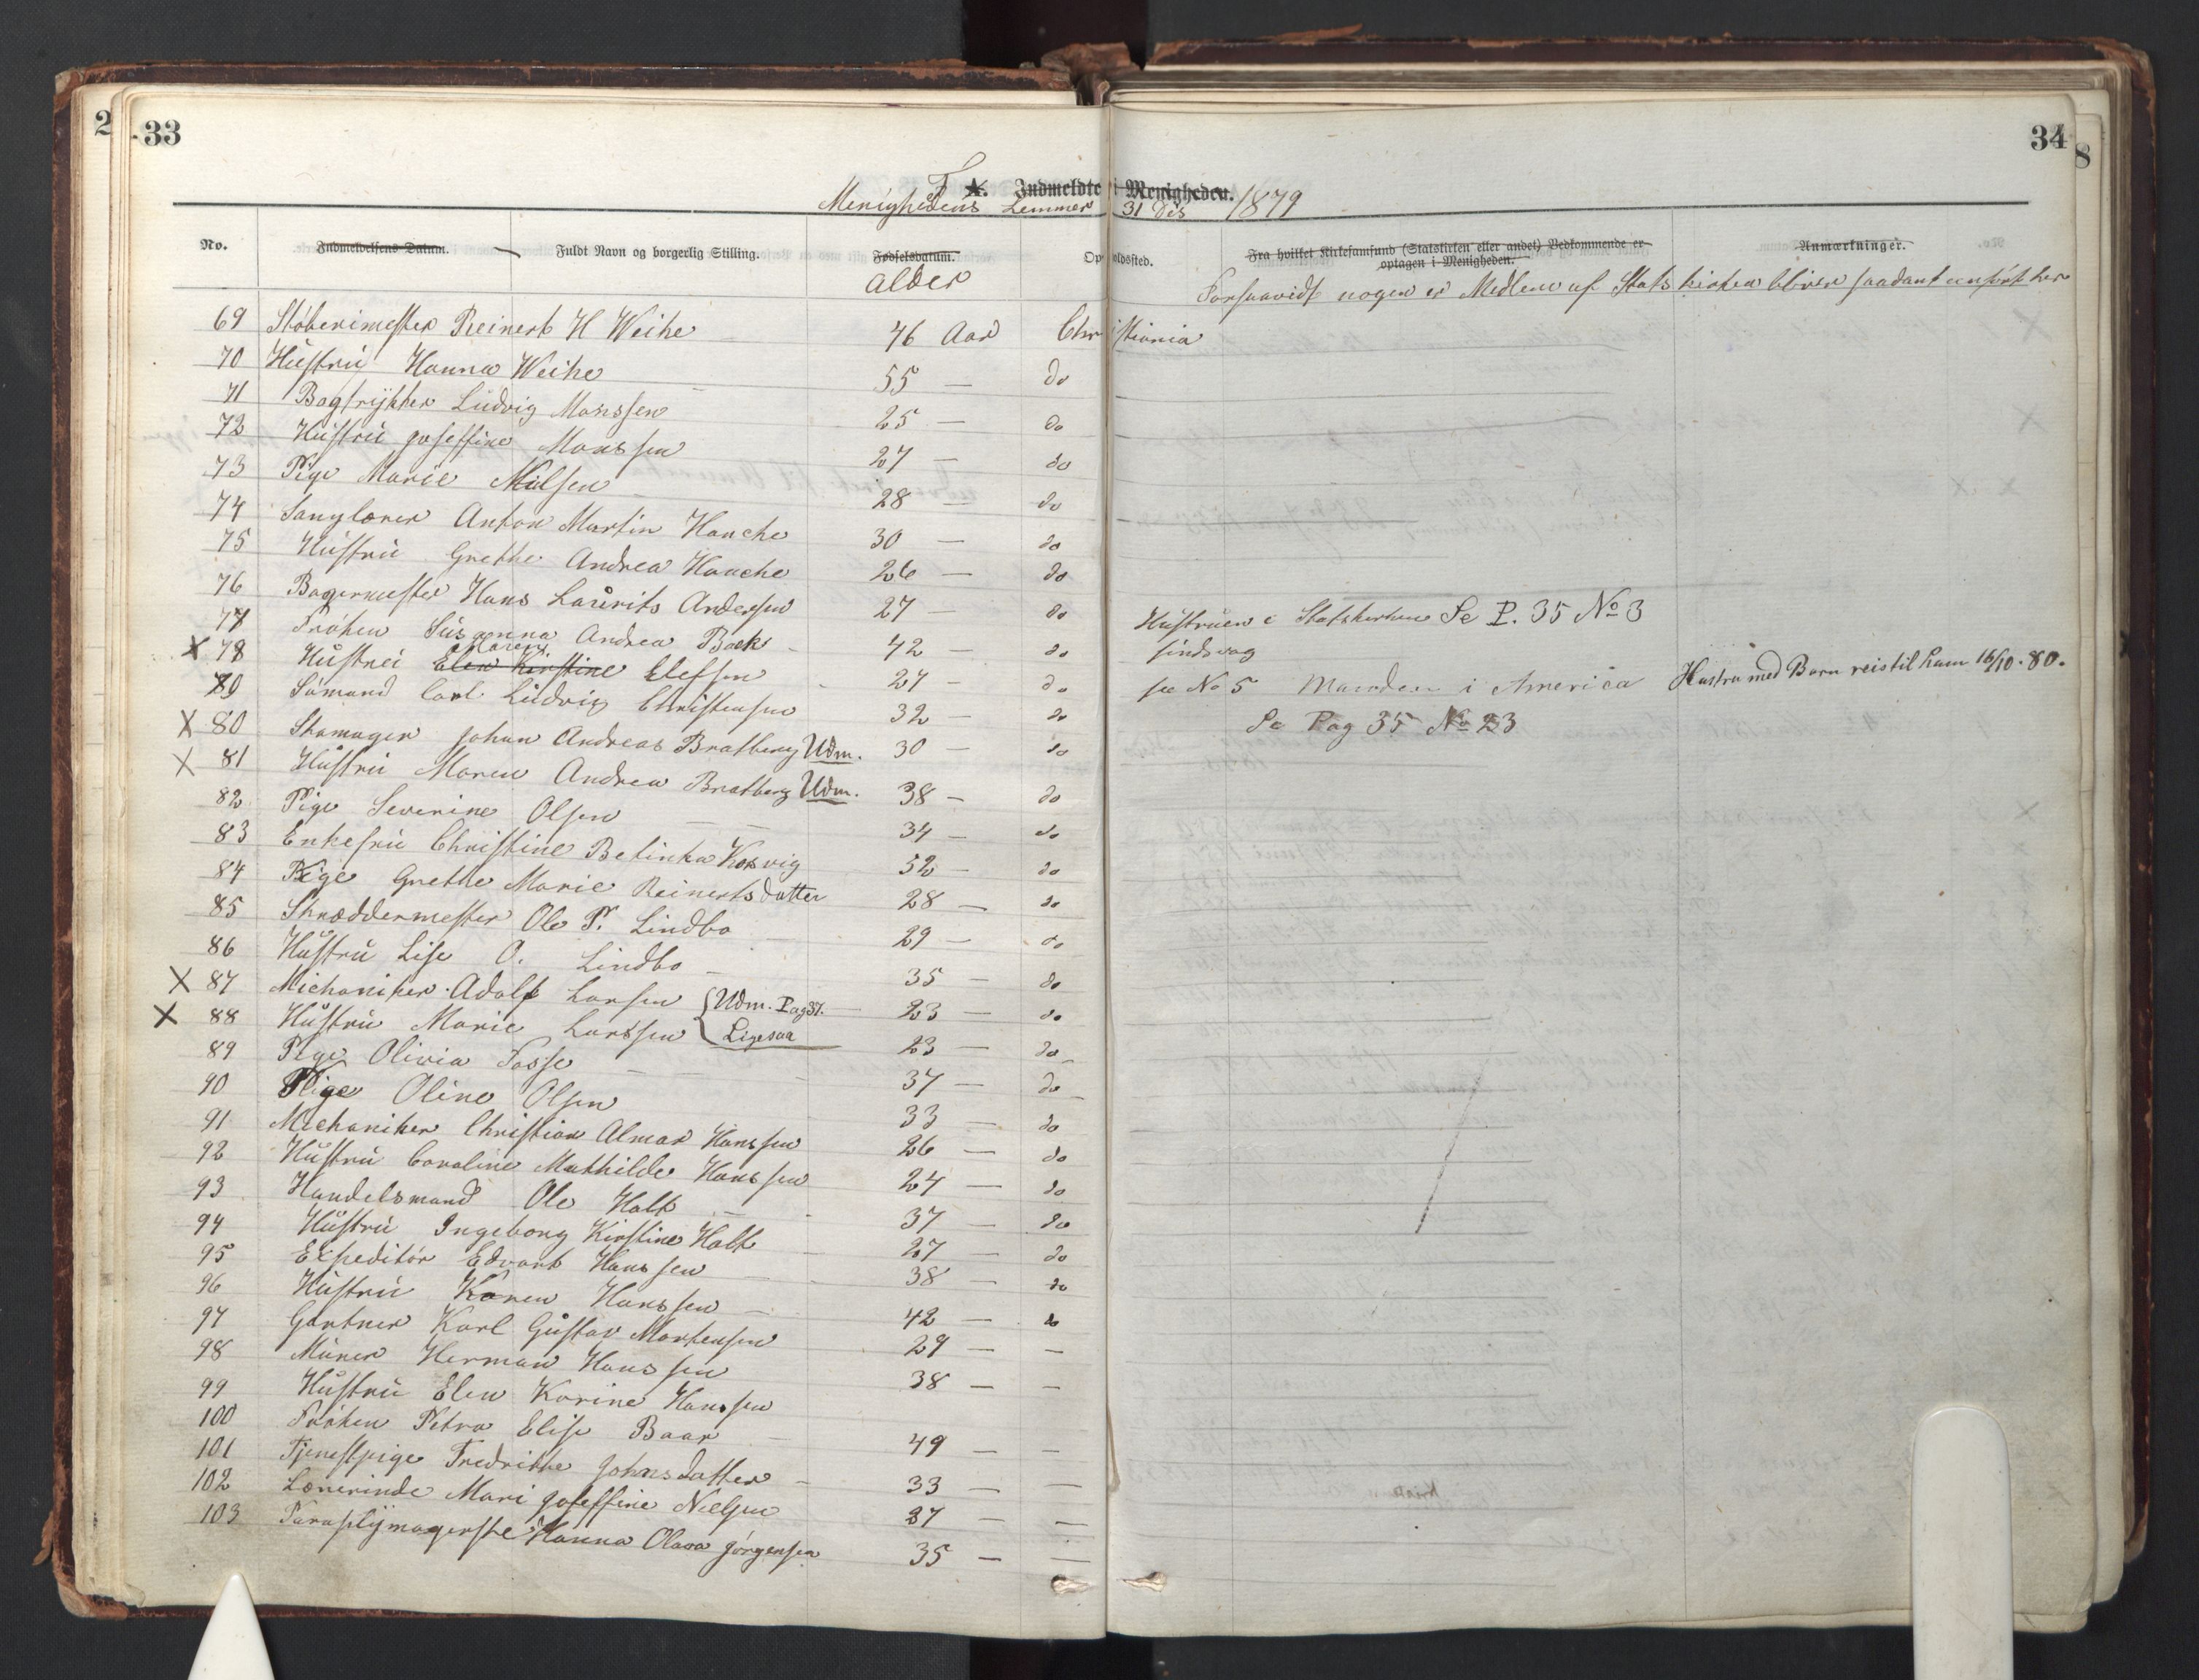 2
33
34
8
F A. Indmeldte i Menigheden.
Menighedens Lemmer 31 Des 1879
No.
Indmeldelsens Datum.
Fuldt Navn og borgerlig Stilling.
Fødselsdatum.
Opholdssted.
Fra hvilket Kirkesamfund (Statskirken eller andet) Vedkommende er
optagen i Menigheden.
Anmærkninger.
alder
Forsaavidt nogen er Medlem af Statskirken bliver saadant anført her
69 Støberimester Reinert H Weihe 46 Aar Christiania
70 Hustru Hanna Weihe 55 — do
71 Bogtrykker Ludvig Monssen 25 — do
72 Hustru Joseffine Monssen 27 — do
73 Pige Marie Nilsen 28 — do
74 Sanglærer Anton Martin Hanche 30 — do
75 Hustru Grethe Andrea Hanche 26 — do
76 Bagermester Hans Laurits Andersen 27 — do Hustruen i Statskirken Se P. 35 No 3
77 Frøken Susanna Andrea Bock 42 — do
X 78 Hustru Elen Kirstine Maren Elefsen 27 — do se No 5 Manden i America Hustru med Barn reis til ham 16/10.80.
79 Sømand Carl Ludvig Christensen 32 — do Se Pag 35 No 23
X 80 Skomager Johan Andreas Bratberg Udm. 30 — do
X 81 Hustru Maren Andrea Bratberg Udm. 38 — do
82 Pige Severine Olsen 34 — do
83 Enkefru Christine Betinka Korsvig 52 — do
84 Pige Grethe Marie Reinertsdatter 28 — do
85 Skræddermester Ole P. Lindbo 29 — do
86 Hustru Lise O. Lindbo 35 — do
X 87 Michaniker Adolf Larsen Udm. Pag 37. 23 — do
X 88 Hustru Marie Larssen Ligesaa 23 — do
89 Pige Olivia Fosse 37 — do
90 Pige Oline Olsen 33 — do
91 Michaniker Christian Almar Hanssen 26 — do
92 Hustru Caroline Mathilde Hanssen 24 — do
93 Handelsmand Ole Holt 37 — do
94 Hustru Ingeborg Kirstine Holt 27 — do
95 Expeditør Edvart Hanssen 38 — do
96 Hustru Karen Hanssen 42 — do
97 Gartner Karl Gustav Martensen 29 — —
98 Murer Herman Hanssen 38 — —
99 Hustru Elen Karine Hanssen
100 Frøken Petra Elise Baar 49 — —
101 Tjenestpige Fredrikke Johnsdatter 33 — —
102 Lærerinde Mari Joseffine Nielsen 27 — —
103 Paraplymagerske Hanna Olava Jørgensen 35 — —